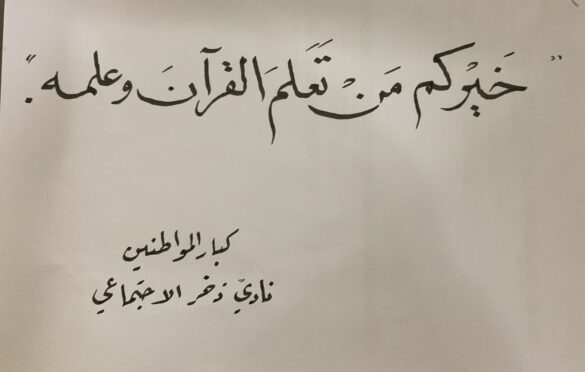 "خَيْركم مَنْ تَعَلمَ القرآنَ وعلمه."
كبار المواطنين
نادي ذخر الاجتماعي